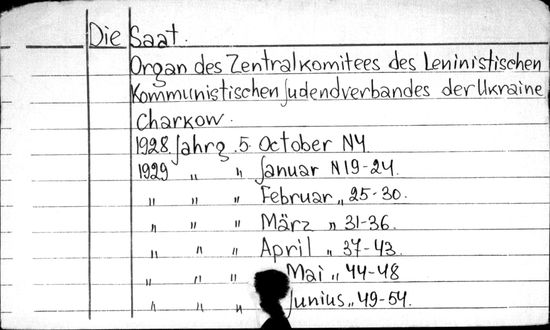 Die Saat.
Organ des Zentralkomitees des Leninistischen
Kommunistischen Judendverbandes der Ukraine
Charkow.
1928 Jahrg. 5. October N4.
1929 „ „ Januar N19-24.
„ „ „ Februar „ 25-30.
„ „ „ März „ 31-36.
„ „ „ April „ 37-43.
„ „ „ Mai „ 44-48
„ „ „ Junius „ 49-54.